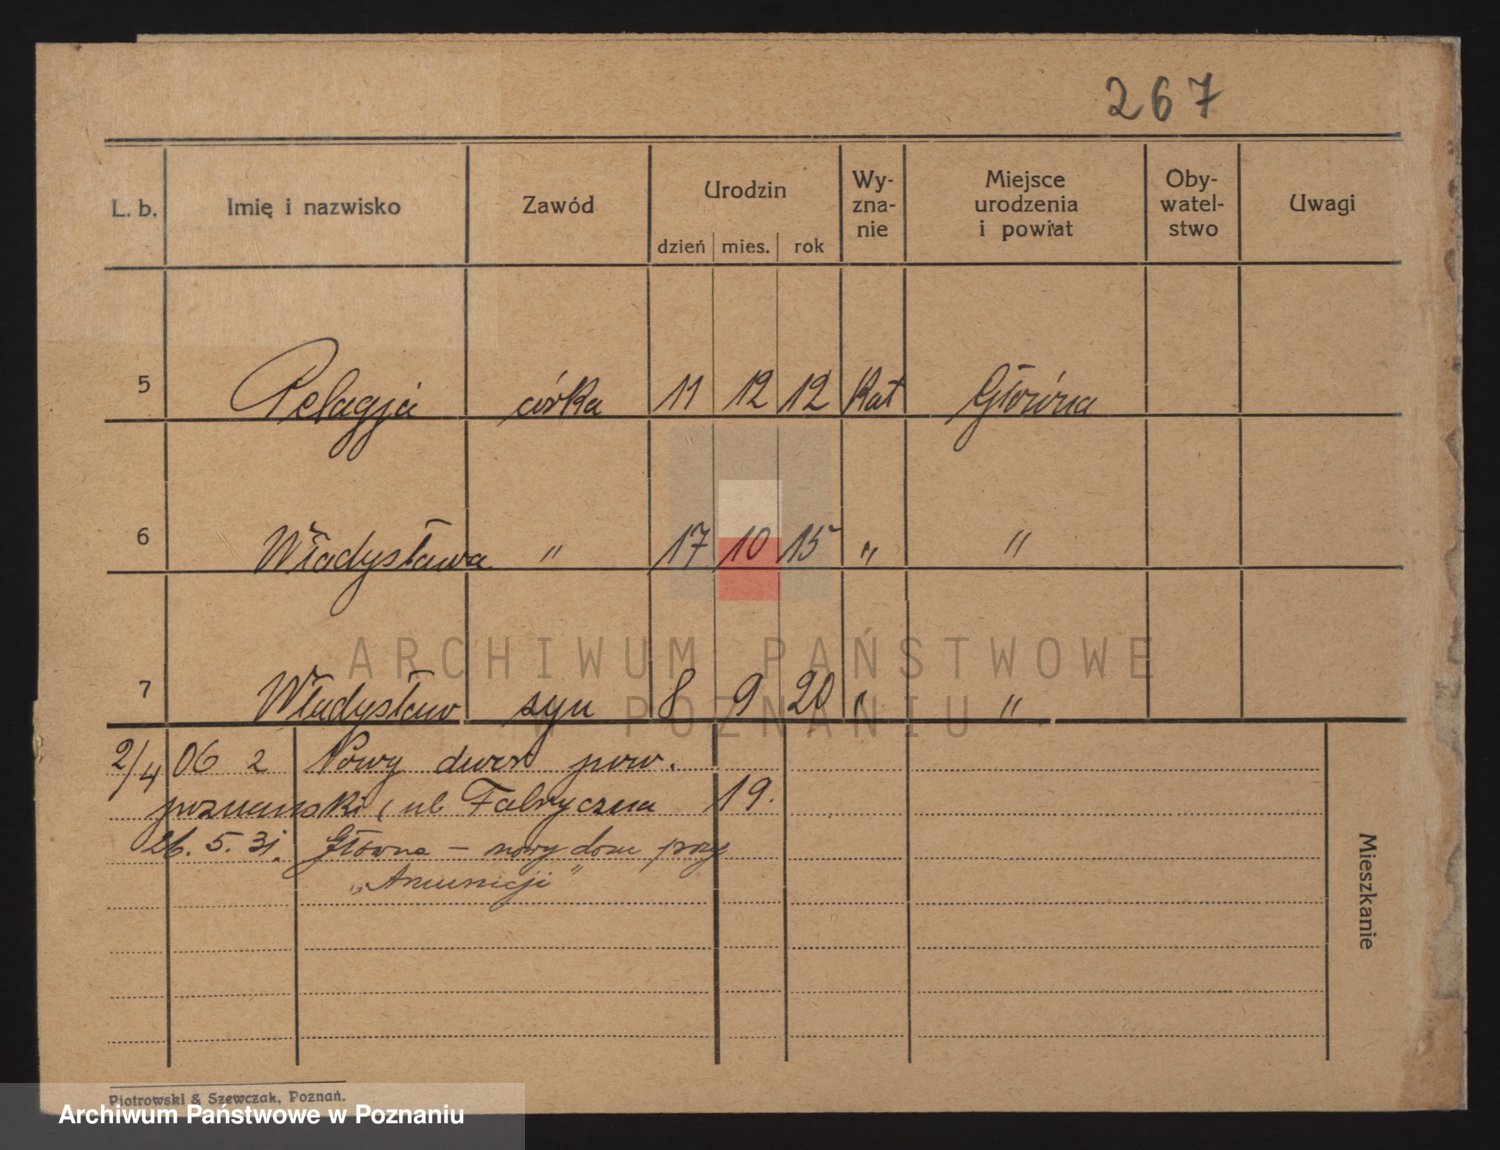 267
L. b. Imię i nazwisko Zawód Urodzin Wy-zna-nie Miejsce urodzenia i powiat Oby-watel-stwo Uwagi
dzień mies. rok
5 Pelagja córka 11 12 12 Kat Główna
6 Władysława " 17 10 15 " "
7 Władysław syn 8 9 20 " "
ARCHIWUM PAŃSTWOWE
W POZNANIU
2/4 06 2 Nowy dwór pow.
poznański, ul Fabryczna 19.
26. 5. 31. Główna – nowy dom przy
„Amunicji"
Mieszkanie
Piotrowski & Szewczak, Poznań.
Archiwum Państwowe w Poznaniu